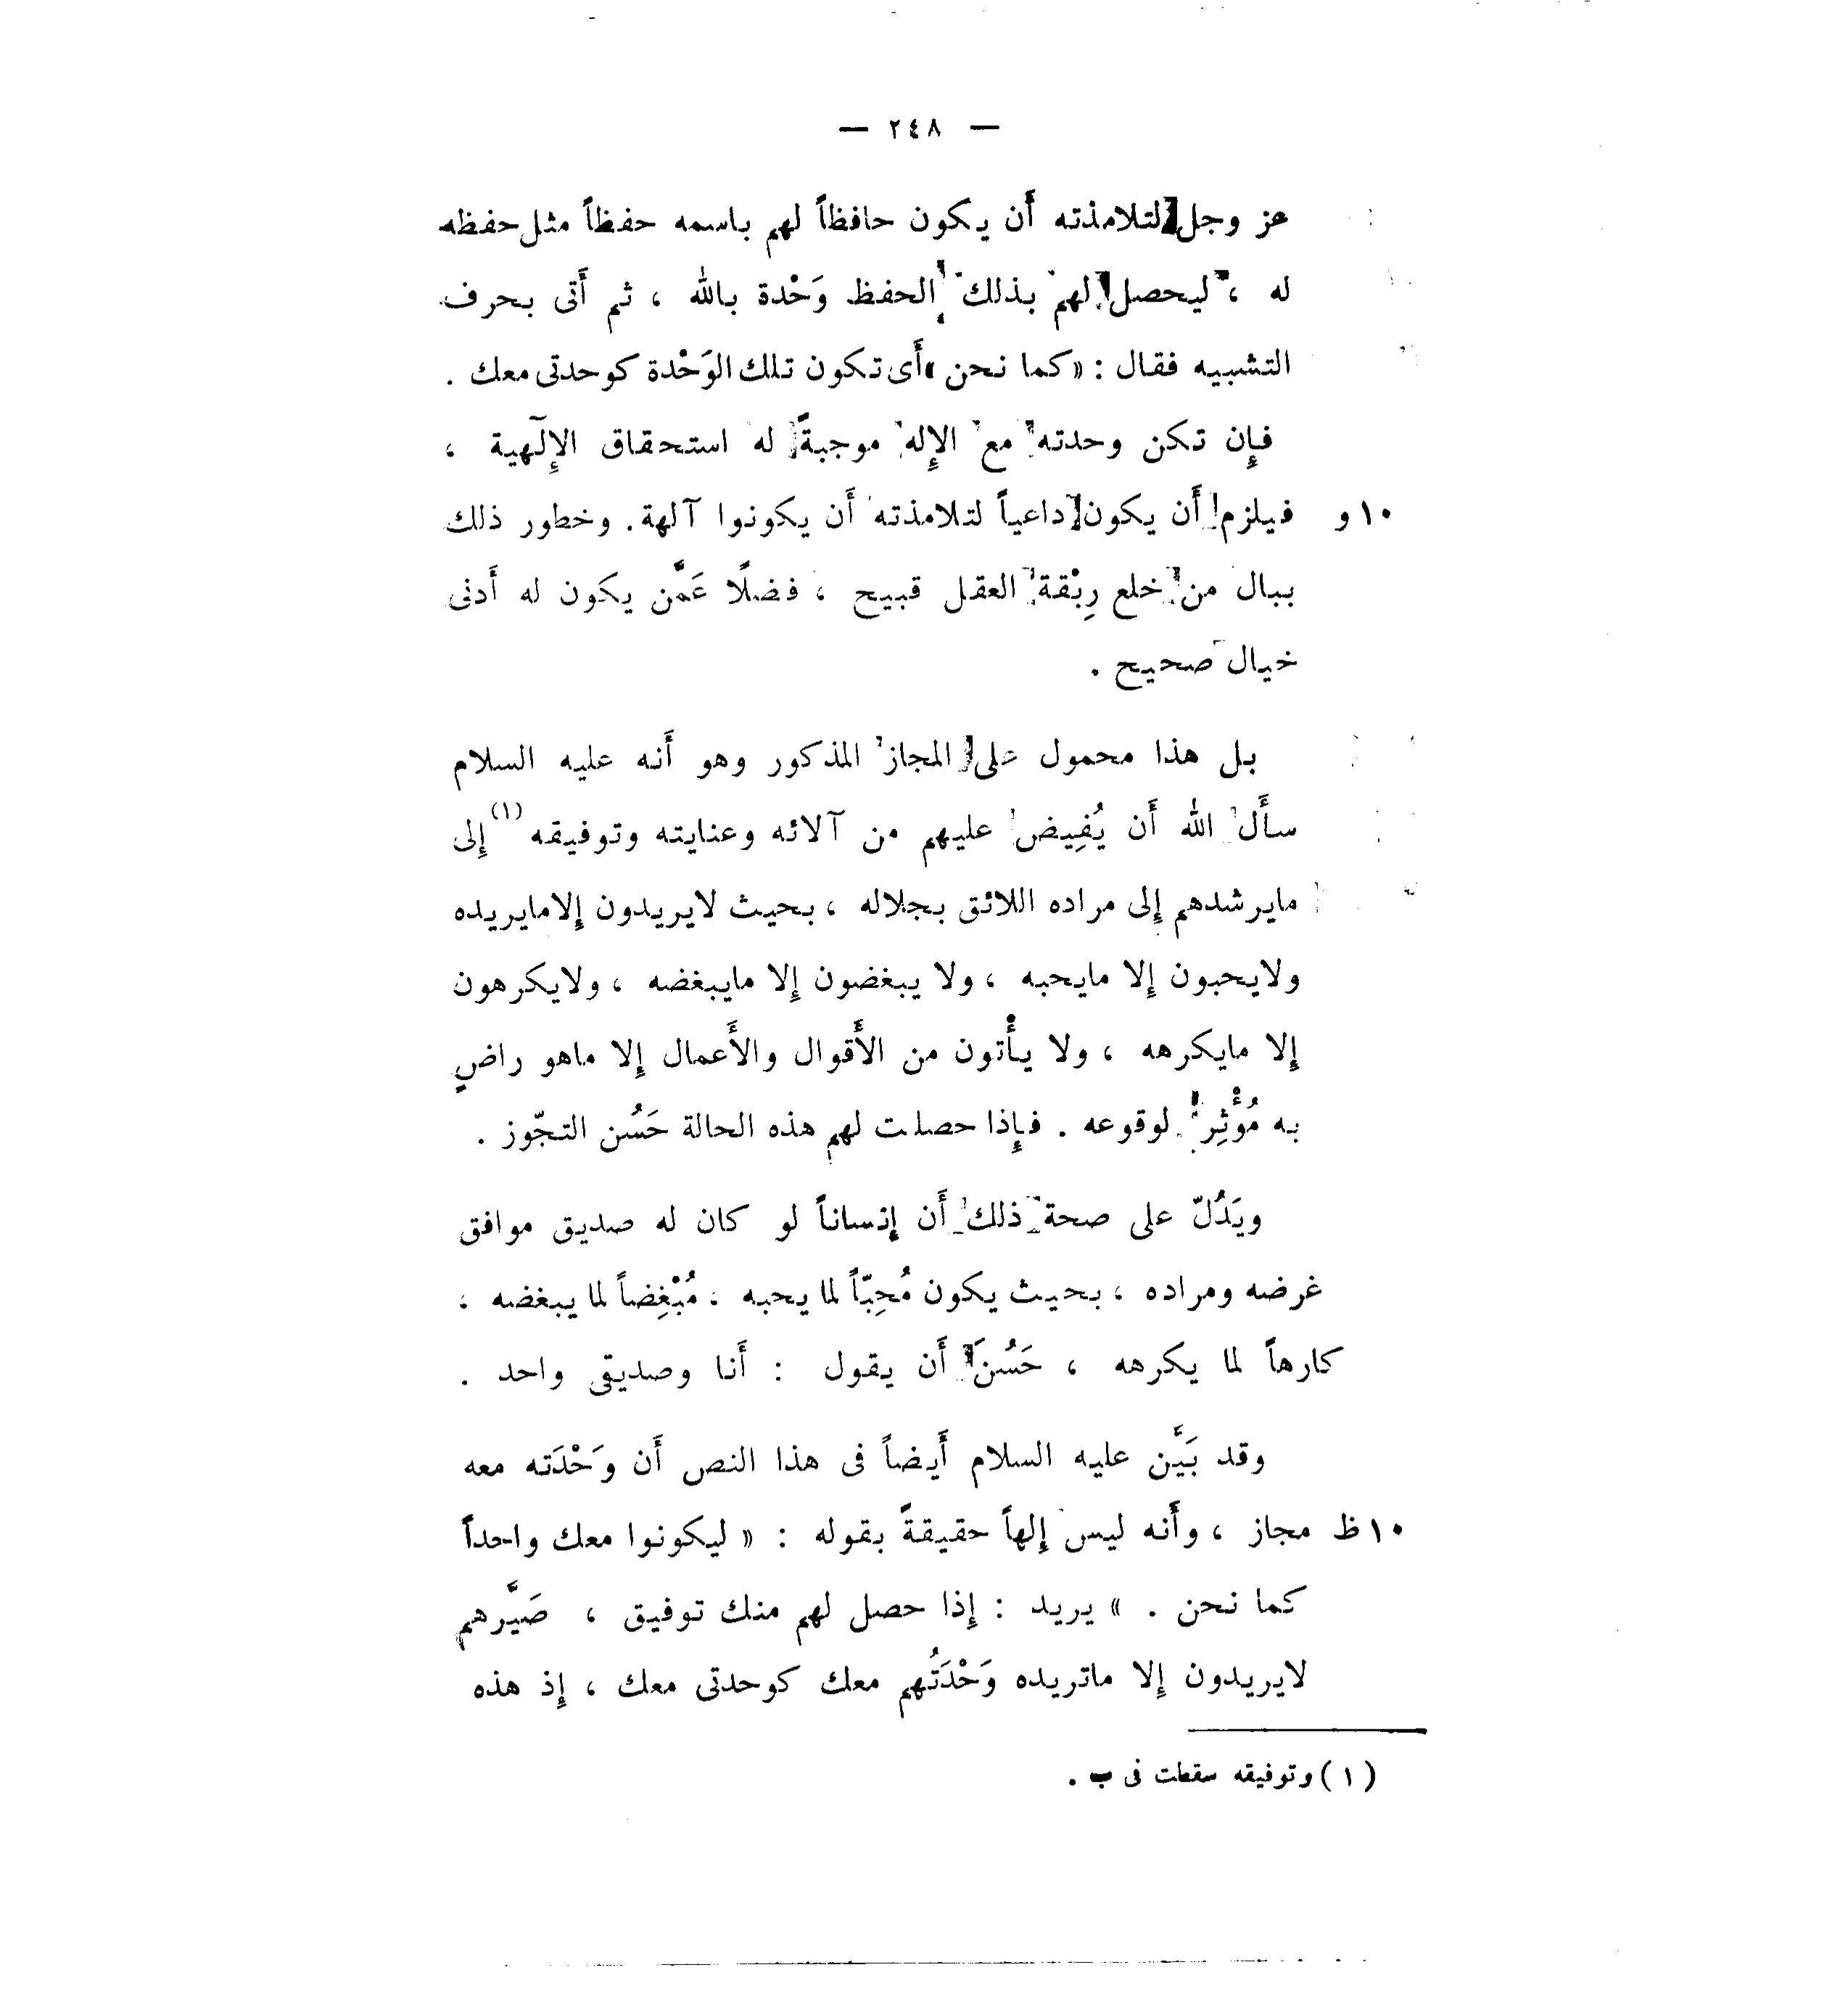 — ٢٤٨ —
عز وجل لتلامذته أَن يكون حافظاً لهم باسمه حفظاً مثل حفظه
له ، ليحصل لهم بذلك الحفظ وَحْدة بالله ، ثم أَتى بحرف
التشبيه فقال : «كما نحن» أَى تكون تلك الوَحْدة كوحدتى معك .
فإِن تكن وحدته مع الإِله موجبةً له استحقاق الإِلٓهية ،
١٠ و فيلزم أَن يكون داعياً لتلامذته أَن يكونوا آلهة . وخطور ذلك
ببال من خلع رِبْقة العقل قبيح ، فضلًا عَمَّن يكون له أَدنى
خيال صحيح .
بل هذا محمول على المجاز المذكور وهو أَنه عليه السلام
سأَل الله أَن يُفِيض عليهم من آلائه وعنايته وتوفيقه (١) إِلى
مايرشدهم إِلى مراده اللائق بجلاله ، بحيث لايريدون إِلامايريده
ولايحبون إِلا مايحبه ، ولا يبغضون إِلا مايبغضه ، ولايكرهون
إِلا مايكرهه ، ولا يأْتون من الأَقوال والأَعمال إِلا ماهو راضٍ
به مُؤْثِر لوقوعه . فإِذا حصلت لهم هذه الحالة حَسُن التجّوز .
ويَدُلّ على صحة ذلك أَن إِنساناً لو كان له صديق موافق
غرضه ومراده ، بحيث يكون مُحِبّاً لما يحبه ، مُبْغِضاً لما يبغضه ،
كارهاً لما يكرهه ، حَسُنَ أَن يقول : أَنا وصديقى واحد .
وقد بَيَّن عليه السلام أَيضاً فى هذا النص أَن وَحْدَته معه
١٠ ظ مجاز ، وأَنه ليس إِلهاً حقيقةً بقوله : « ليكونوا معك واحداً
كما نحن . » يريد : إِذا حصل لهم منك توفيق ، صَيَّرهم
لايريدون إِلا ماتريده وَحْدَتُهم معك كوحدتى معك ، إِذ هذه
(١) وتوفيقه سقطت فى ب .